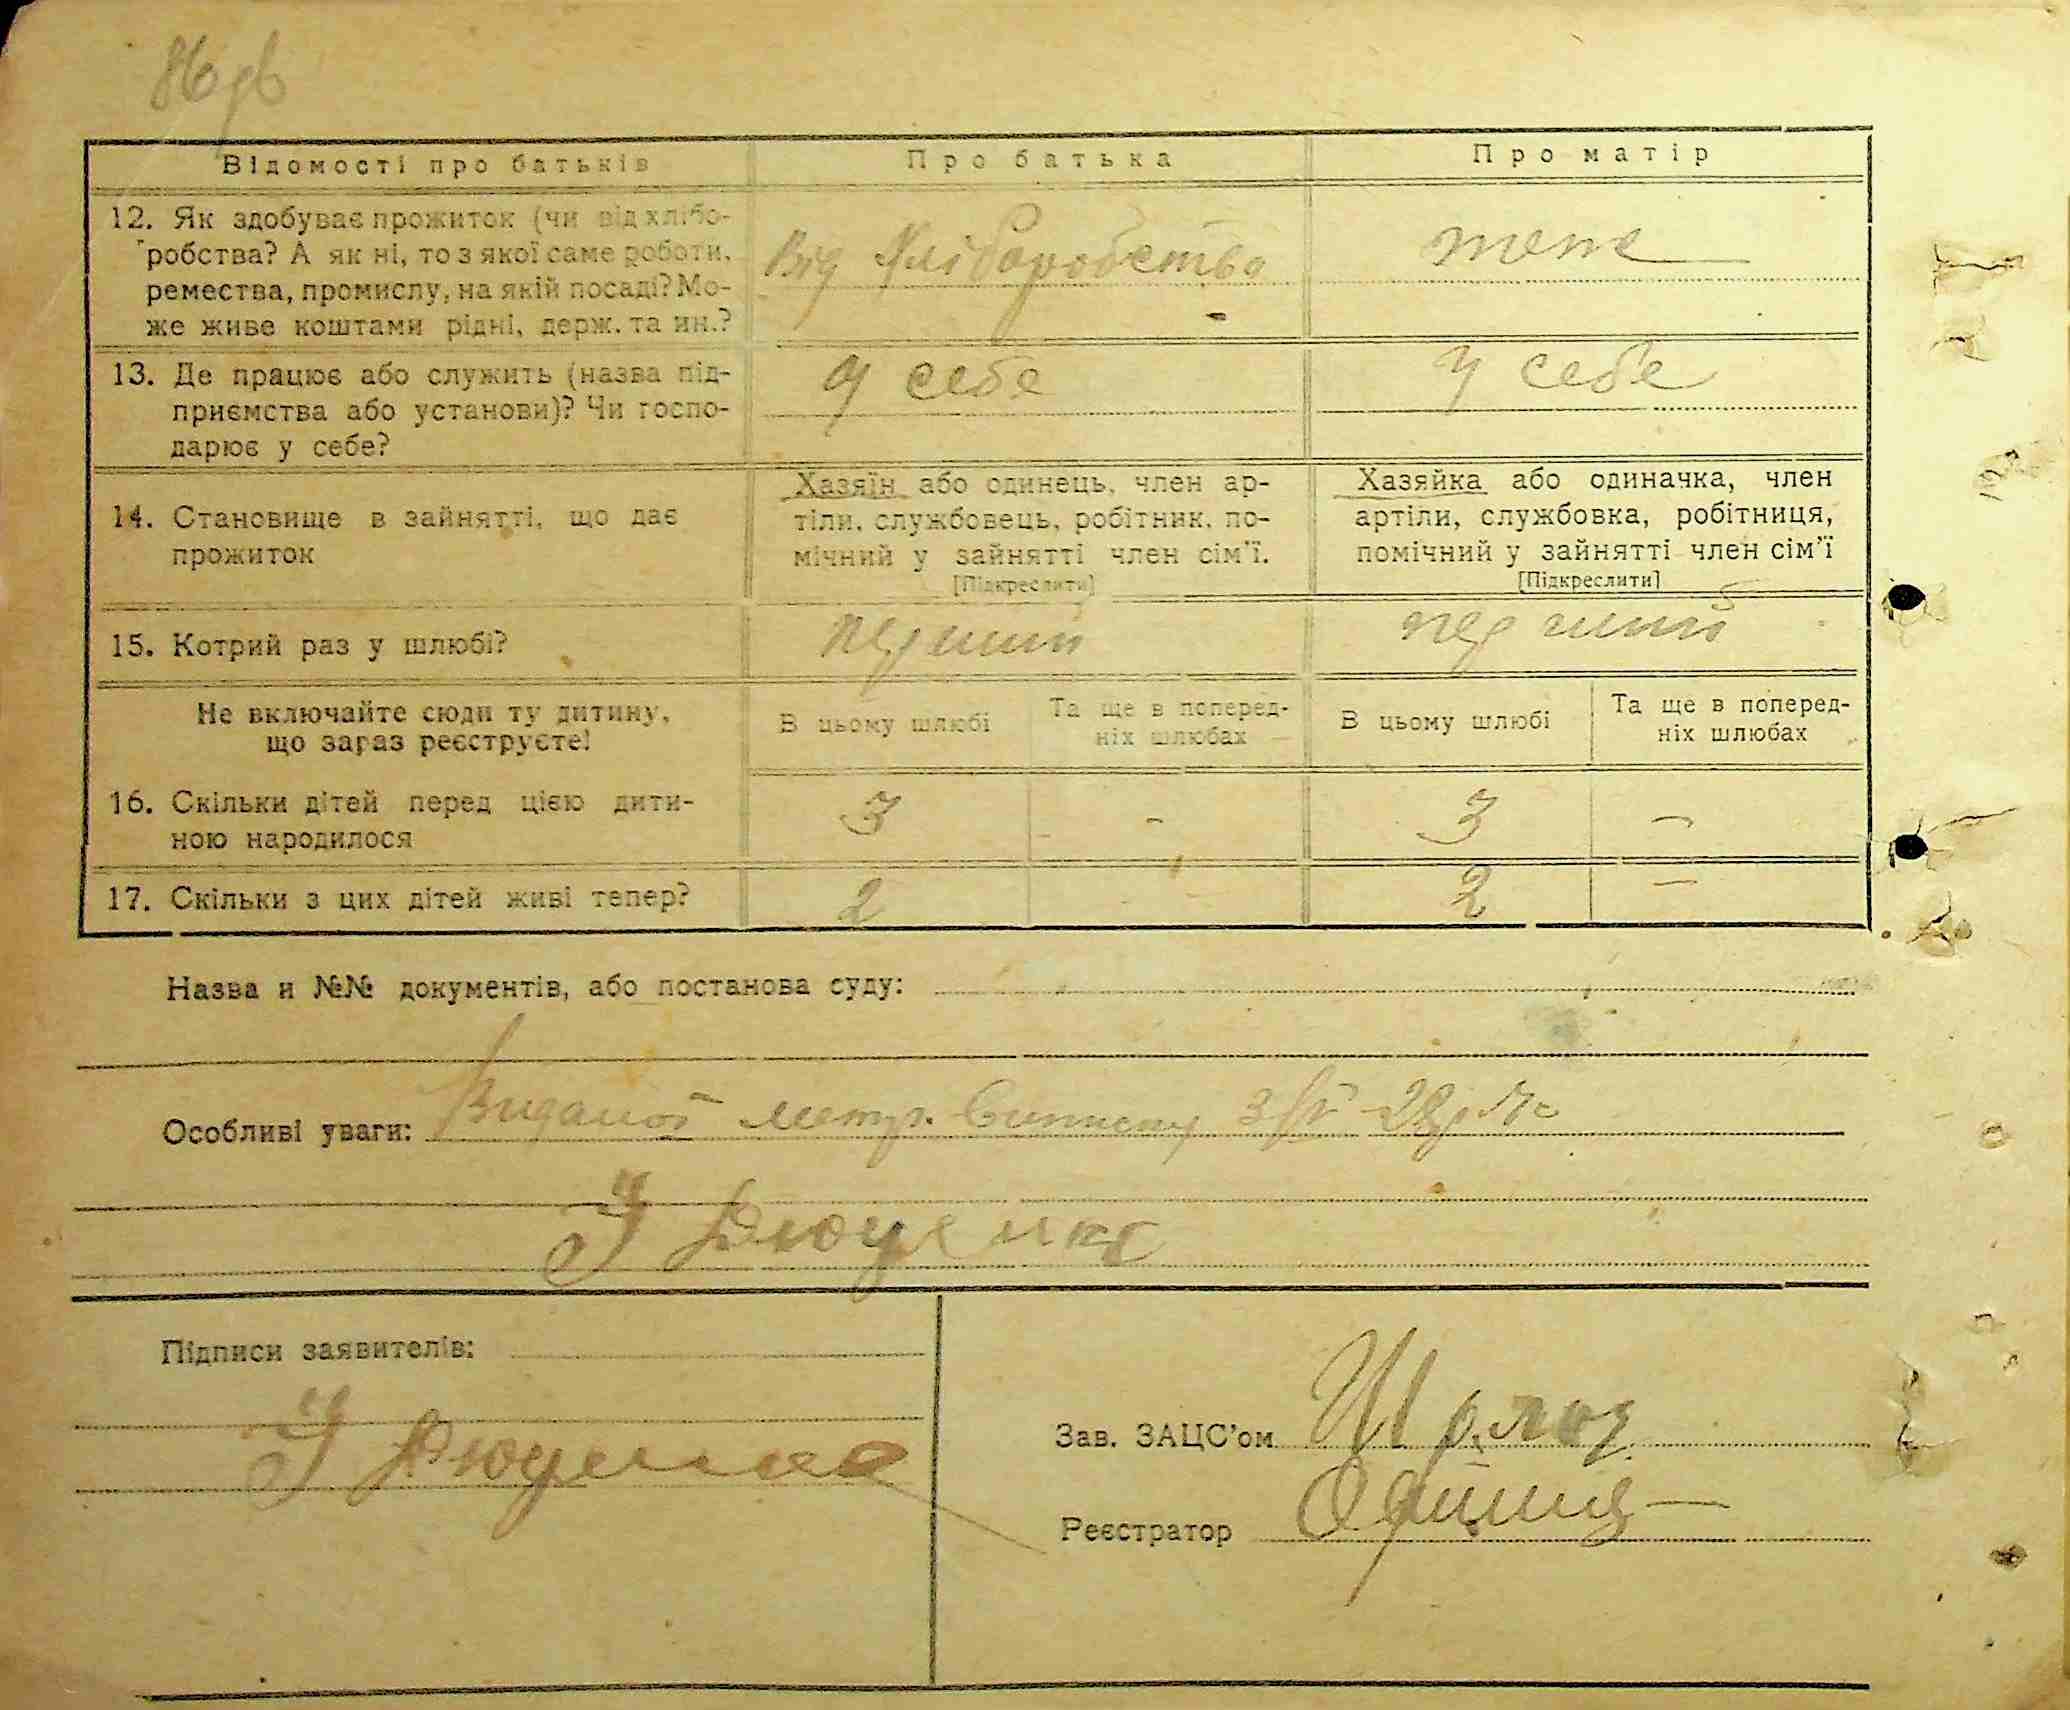 Відомості про батьків
Про батька
Про матір
12. Як здобуває прожиток (чи від хлібо-
робства? А як ні, то з якої саме роботи,
ремества, промислу, на якій посаді? Мо-
же живе коштами рідні, держ. та ин.?
Від Хліборобства
тоже
13. Де працює або служить (назва під-
приємства або установи)? Чи госпо-
дарює у себе?
У себе
У себе
14. Становище в зайнятті, що дає
прожиток
Хазяїн або одинець, член ар-
тіли, службовець, робітник, по-
мічний у зайнятті член сім'ї.
[Підкреслити]
Хазяйка або одиначка, член
артіли, службовка, робітниця,
помічний у зайнятті член сім'ї
[Підкреслити]
15. Котрий раз у шлюбі?
перший
перший
Не включайте сюди ту дитину,
що зараз реєструєте!
В цьому шлюбі
Та ще в поперед-
ніх шлюбах
В цьому шлюбі
Та ще в поперед-
ніх шлюбах
16. Скільки дітей перед цією дити-
ною народилося
3
-
3
-
17. Скільки з цих дітей живі тепер?
2
2
-
Назва и №№ документів, або постанова суду:
Особливі уваги:
Підписи заявителів:
Зав. ЗАЦС'ом
Реєстратор